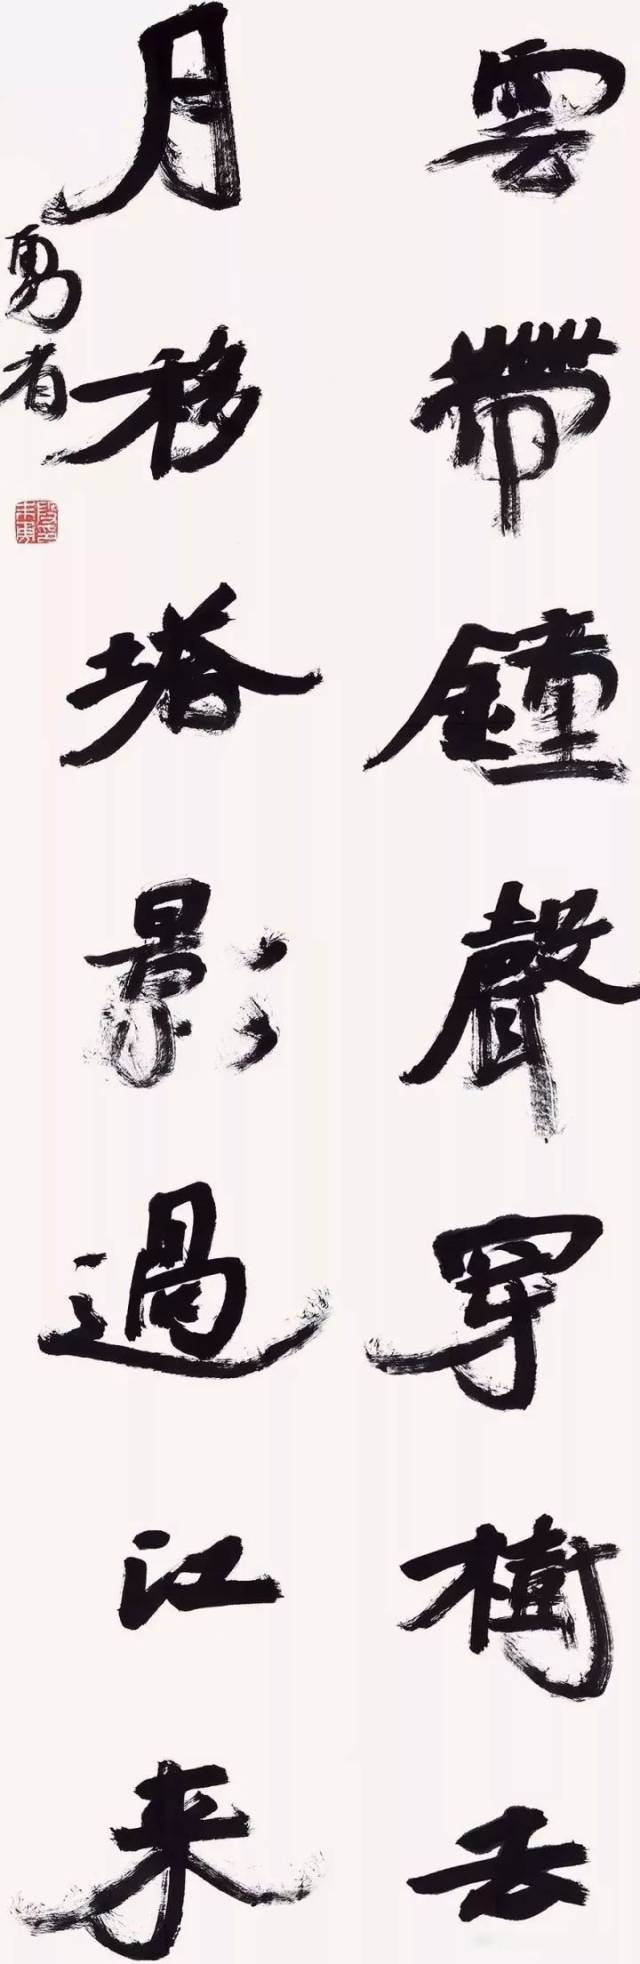 雲帶鐘聲穿樹去
月移塔影過江来